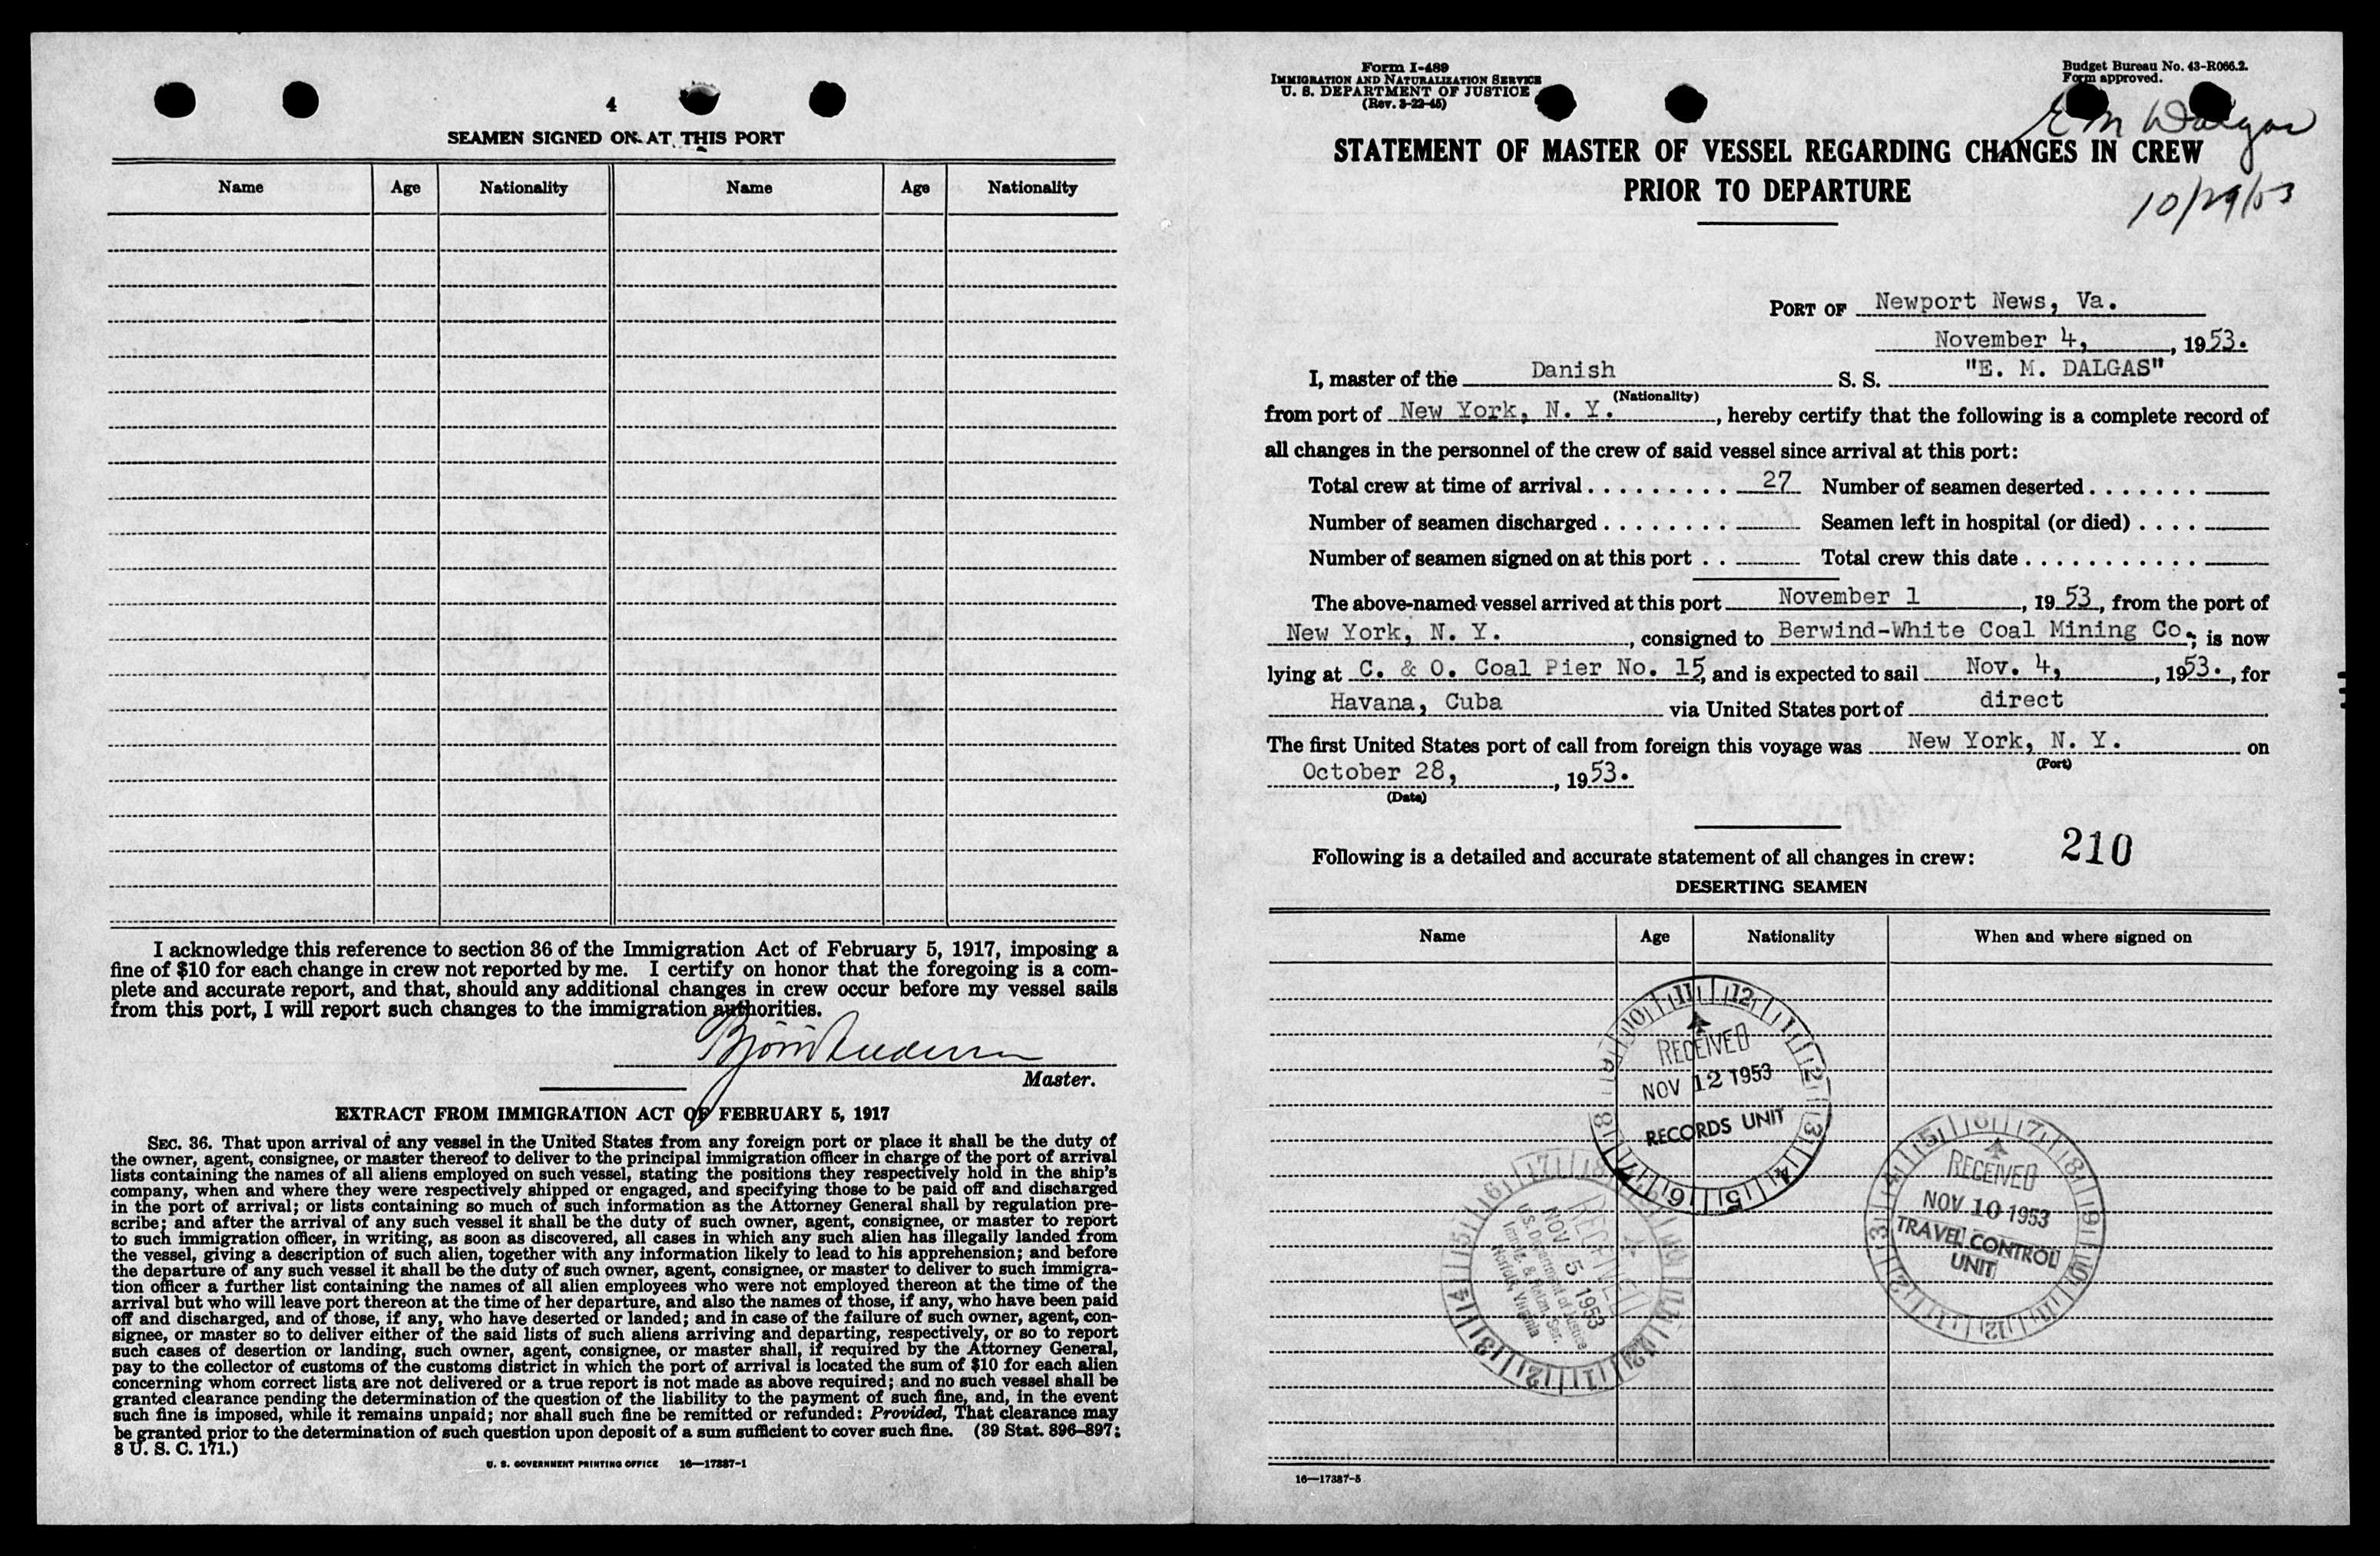 4
SEAMEN SIGNED ON AT THIS PORT
Name Age Nationality Name Age Nationality
I acknowledge this reference to section 36 of the Immigration Act of February 5, 1917, imposing a
fine of $10 for each change in crew not reported by me. I certify on honor that the foregoing is a com-
plete and accurate report, and that, should any additional changes in crew occur before my vessel sails
from this port, I will report such changes to the immigration authorities.
Master.
EXTRACT FROM IMMIGRATION ACT OF FEBRUARY 5, 1917
SEC. 36. That upon arrival of any vessel in the United States from any foreign port or place it shall be the duty of
the owner, agent, consignee, or master thereof to deliver to the principal immigration officer in charge of the port of arrival
lists containing the names of all aliens employed on such vessel, stating the positions they respectively hold in the ship's
company, when and where they were respectively shipped or engaged, and specifying those to be paid off and discharged
in the port of arrival; or lists containing so much of such information as the Attorney General shall by regulation pre-
scribe; and after the arrival of any such vessel it shall be the duty of such owner, agent, consignee, or master to report
to such immigration officer, in writing, as soon as discovered, all cases in which any such alien has illegally landed from
the vessel, giving a description of such alien, together with any information likely to lead to his apprehension; and before
the departure of any such vessel it shall be the duty of such owner, agent, consignee, or master to deliver to such immigra-
tion officer a further list containing the names of all alien employees who were not employed thereon at the time of the
arrival but who will leave port thereon at the time of her departure, and also the names of those, if any, who have been paid
off and discharged, and of those, if any, who have deserted or landed; and in case of the failure of such owner, agent, con-
signee, or master so to deliver either of the said lists of such aliens arriving and departing, respectively, or so to report
such cases of desertion or landing, such owner, agent, consignee, or master shall, if required by the Attorney General,
pay to the collector of customs of the customs district in which the port of arrival is located the sum of $10 for each alien
concerning whom correct lists are not delivered or a true report is not made as above required; and no such vessel shall be
granted clearance pending the determination of the question of the liability to the payment of such fine, and, in the event
such fine is imposed, while it remains unpaid; nor shall such fine be remitted or refunded: Provided, That clearance may
be granted prior to the determination of such question upon deposit of a sum sufficient to cover such fine. (39 Stat. 896-897;
8 U. S. C. 171.)
U. S. GOVERNMENT PRINTING OFFICE 16—17387-1
Form I-489
IMMIGRATION AND NATURALIZATION SERVICE
U. S. DEPARTMENT OF JUSTICE
(Rev. 3-22-45)
Budget Bureau No. 43-R066.2.
Form approved.
E M Dalgas
10/29/53
STATEMENT OF MASTER OF VESSEL REGARDING CHANGES IN CREW
PRIOR TO DEPARTURE
PORT OF Newport News, Va.
November 4, , 1953.
I, master of the Danish S. S. "E. M. DALGAS"
(Nationality)
from port of New York, N. Y. , hereby certify that the following is a complete record of
all changes in the personnel of the crew of said vessel since arrival at this port:
Total crew at time of arrival . . . . . . . . . . 27 Number of seamen deserted . . . . . . .
Number of seamen discharged . . . . . . . . Seamen left in hospital (or died) . . . .
Number of seamen signed on at this port . . Total crew this date . . . . . . . . . . .
The above-named vessel arrived at this port November 1 , 1953, from the port of
New York, N. Y. , consigned to Berwind-White Coal Mining Co.; is now
lying at C. & O. Coal Pier No. 15, and is expected to sail Nov. 4, , 1953., for
Havana, Cuba via United States port of direct
The first United States port of call from foreign this voyage was New York, N. Y. on
(Port)
October 28, , 1953.
(Date)
Following is a detailed and accurate statement of all changes in crew: 210
DESERTING SEAMEN
Name Age Nationality When and where signed on
11 12 1 2 3 4 5 6 7 8 9 10
RECEIVED
NOV 12 1953
RECORDS UNIT
RECEIVED
NOV 5 1953
U.S. Department of Justice
Immig. & Natzn. Ser.
Norfolk, Virginia
5 6 7 8 9 10 11 12 1 2 3 4
RECEIVED
NOV 10 1953
TRAVEL CONTROL
UNIT
16—17387-5